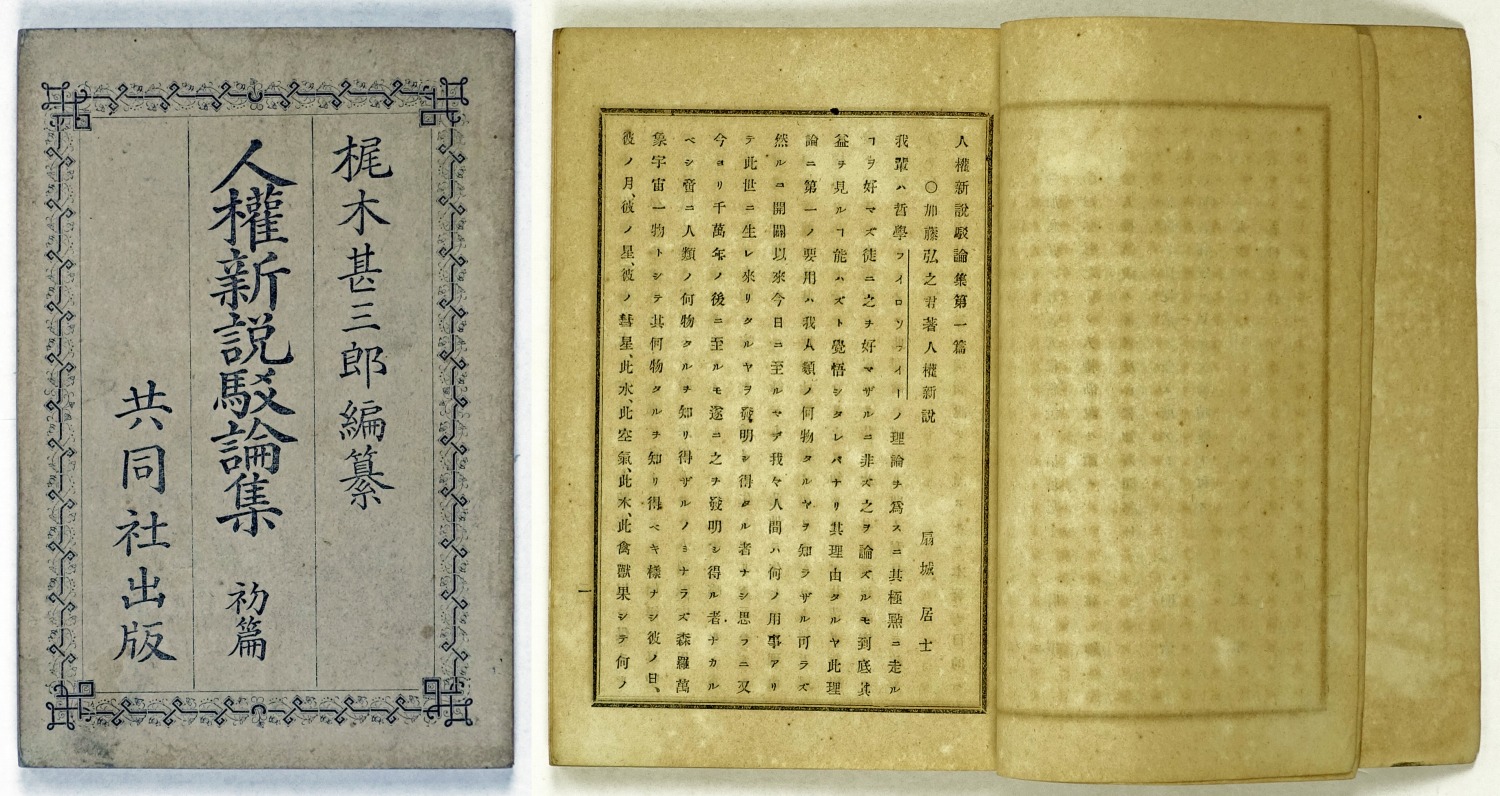 梶木甚三郎編纂
人權新説駁論集 初篇
共同社出版
人權新説駁論集第一篇
〇加藤弘之君著人權新説 扇城居士
我輩ハ哲學フイロソフイーノ理論ヲ爲スニ其極㸃ニ走ル
ヿヲ好マズ徒ニ之ヲ好マザルニ非ズ之ヲ論ズルモ到底其
益ヲ見ルヿ能ハズト覺悟シタレバナリ其理由タルヤ此理
論ニ第一ノ要用ハ我人類ノ何物タルヤヲ知ラザル可ラズ
然ルニ開闢以來今日ニ至ルマデ我々人間ハ何ノ用事アリ
テ此世ニ生レ來リタルヤヲ發明シ得タル者ナシ思フニ又
今ヨリ千萬年ノ後ニ至ルモ遂ニ之ヲ發明シ得ル者ナカル
ベシ啻ニ人類ノ何物タルヲ知リ得ザルノミナラズ森羅萬
象宇宙一物トシテ其何物タルヲ知リ得ベキ樣ナシ彼ノ日、
彼ノ月、彼ノ星、彼ノ彗星、此水、此空氣、此木、此禽獸果シテ何ノ
一